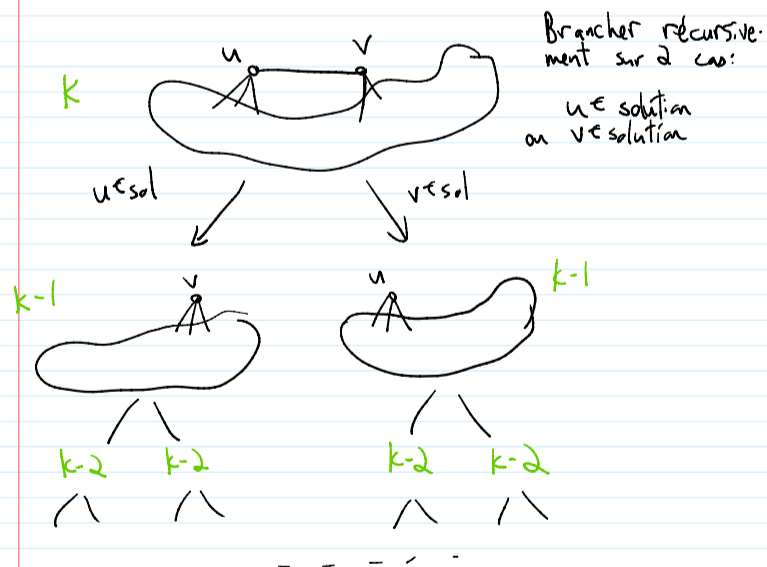 Brancher récursive-
ment sur 2 cas:
u ∈ solution
ou v ∈ solution
u v
k
u∈sol v∈sol
v u
k-1 k-1
k-2 k-2 k-2 k-2